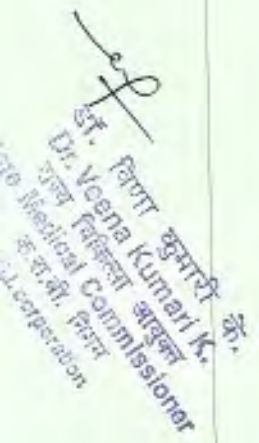 डॉ. विणा कुमारी के.
Dr. Veena Kumari K.
राज्य चिकित्सा आयुक्त
Medical Commissioner
क.रा.बी. निगम
corporation